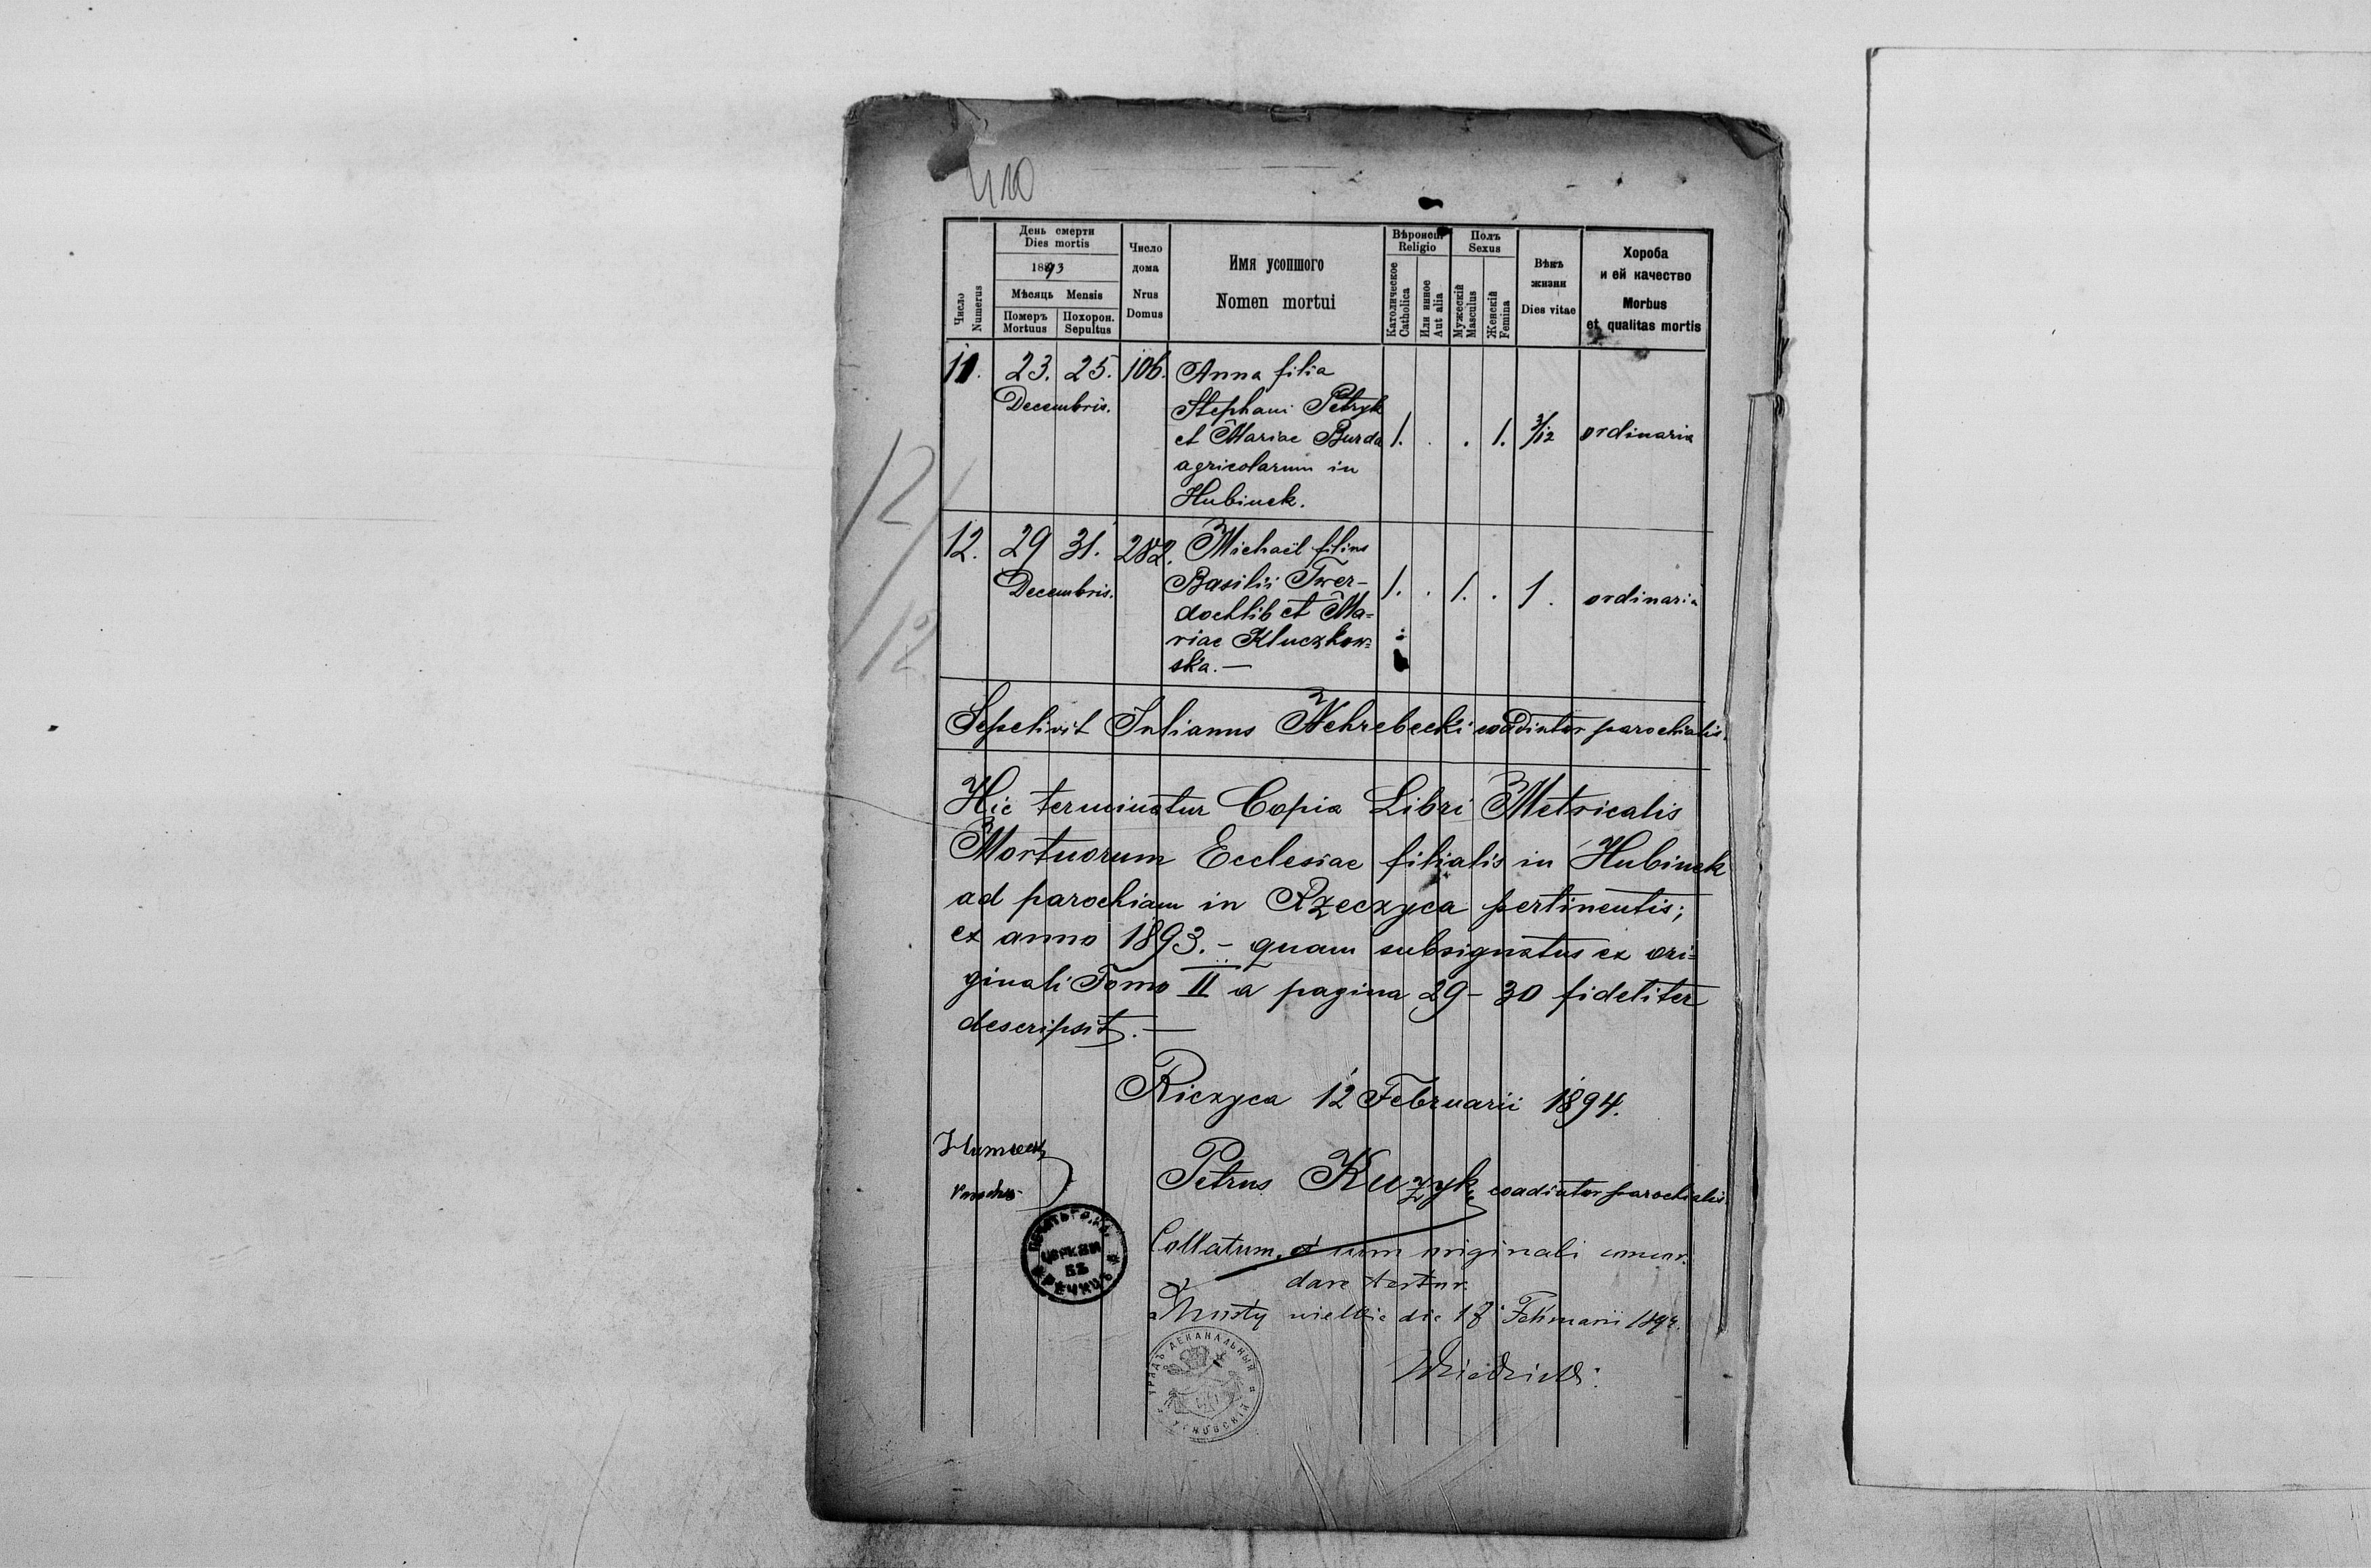 410
День смерти
Dies mortis
1893
Мѣсяць Mensis
Число
Numerus
Померъ
Mortuus
Похорон.
Sepultus
Число
дома
Nrus
Domus
Имя усопшого
Nomen mortui
Вѣроисп.
Religio
Католическое
Catholica
Или инное
Aut alia
Полъ
Sexus
Мужескій
Masculus
Женскій
Femina
Вѣкъ
жизни
Dies vitae
Хороба
и ей качество
Morbus
et qualitas mortis
11. 23. 25. 106. Anna filia
Decembris. Stephani Petryk
et Mariae Burda 1. . . 1. 3/12 ordinaria
agricolarum in
Hubinek.
12. 29 31. 282. Michaël filius
Decembris. Basilii Twer-
dochlib et Ma- 1. . 1. . 1. ordinaria
riae Kluczkow-
ska. —
12/
12
Sepelivit Julianus Nehrebecki coadiutor parochialis.
Hic terminatur Copia Libri Metricalis
Mortuorum Ecclesiae filialis in Hubinek
ad parochiam in Rzeczyca pertinentis;
ex anno 1893. – quam subsignatus ex ori-
ginali Tomo II a pagina 29 – 30 fideliter
descripsit. —
Riczyca 12 Februarii 1894.
Petrus Kuzyk coadiutor parochialis
Collatum, cum originali concor-
dare testor
die 18 Februarii 1894.
ЦЕРКВИ
ВЪ
ДЕКАНАЛЬНЫЙ